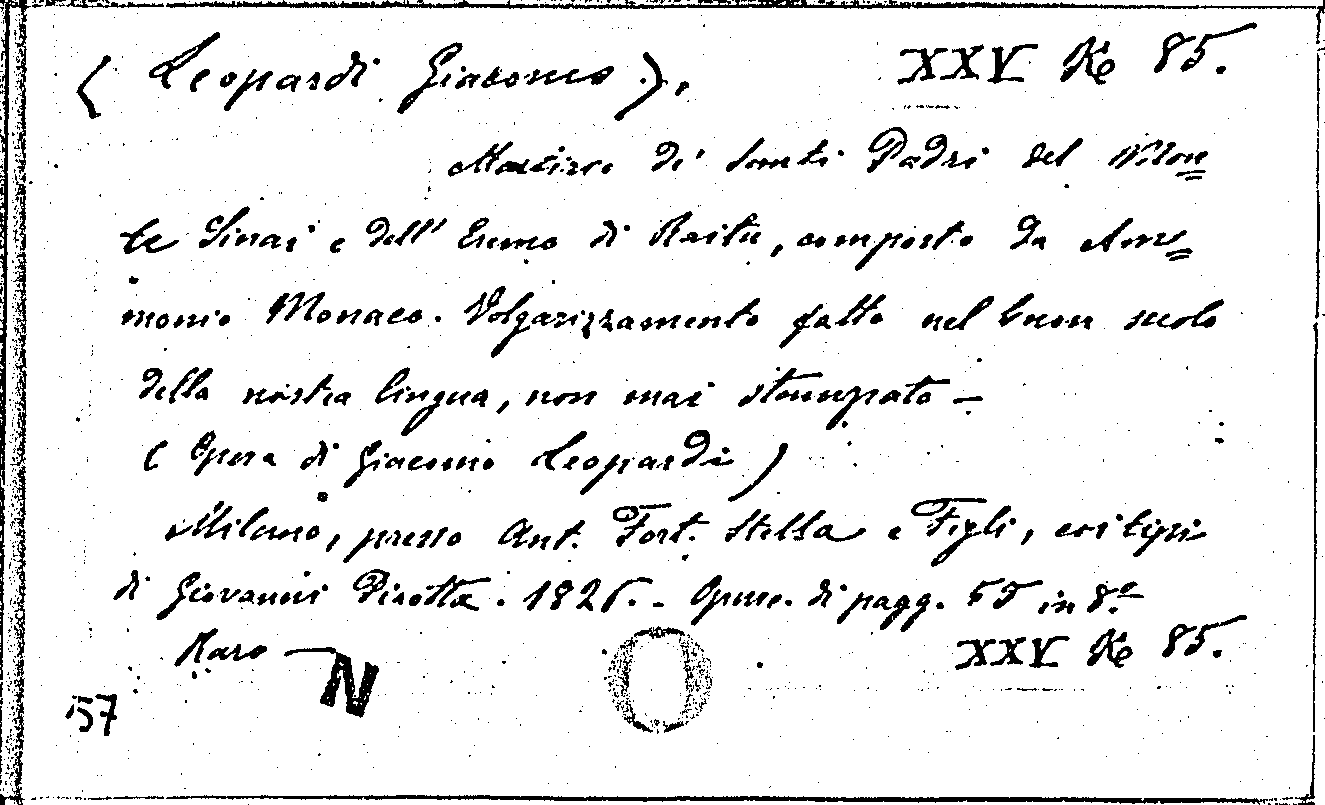 (Leopardi Giacomo), XXV Ke 85.
Martirio de' Santi Padri del Mon=
te Sinai e dell' Eremo di Raitu, composto da Am=
monio Monaco. Volgarizzamento fatto nel buon secolo
della nostra lingua, non mai stampato —
(Opera di Giacomo Leopardi)
Milano, presso Ant. Fort. Stella e Figli, coi tipi
di Giovanni Pirotta. 1826. - Opusc. di pagg. 55 in 8.º
Raro — XXV Ke 85.
N O
57